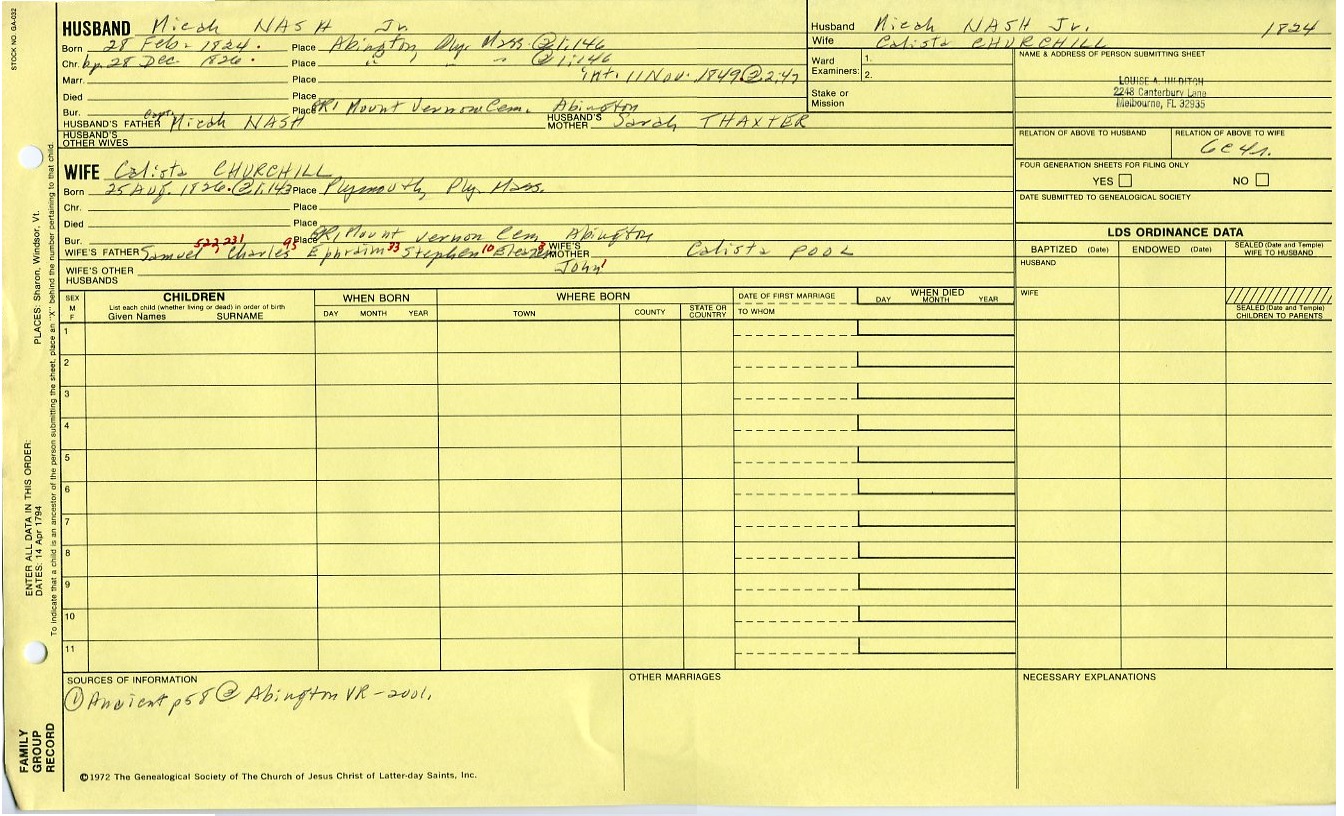 STOCK NO. GA-032
HUSBAND Micah NASH Jr.
Born 28 Feb. 1824. Place Abington Ply. Mass. @1:146
Chr. bp. 28 Dec. 1826. Place " " " @1:146
Marr. Place int. 11 Nov. 1849 @2:47
Died Place
Bur. Place GR1 Mount Vernon Cem. Abington
HUSBAND'S FATHER Capt. Micah NASH HUSBAND'S MOTHER Sarah THAXTER
HUSBAND'S OTHER WIVES
Husband Micah NASH Jr. 1824
Wife Calista CHURCHILL
Ward Examiners: 1. 2.
Stake or Mission
NAME & ADDRESS OF PERSON SUBMITTING SHEET
LOUISE A.
2248 Canterbury Lane
Melbourne, FL 32935
RELATION OF ABOVE TO HUSBAND RELATION OF ABOVE TO WIFE
6c4r.
FOUR GENERATION SHEETS FOR FILING ONLY
YES NO
DATE SUBMITTED TO GENEALOGICAL SOCIETY
WIFE Calista CHURCHILL
Born 25 Aug. 1826. @1:143 Place Plymouth, Ply. Mass.
Chr. Place
Died Place
Bur. Place GR1 Mount Vernon Cem Abington
WIFE'S FATHER Samuel 522,231 Charles 93 Ephraim 33 Stephen 10 Eleazer 3 John 1 WIFE'S MOTHER Calista POOL
WIFE'S OTHER HUSBANDS
LDS ORDINANCE DATA
BAPTIZED (Date) ENDOWED (Date) SEALED (Date and Temple) WIFE TO HUSBAND
HUSBAND
WIFE
SEALED (Date and Temple) CHILDREN TO PARENTS
SEX M F
CHILDREN
List each child (whether living or dead) in order of birth
Given Names SURNAME
WHEN BORN
DAY MONTH YEAR
WHERE BORN
TOWN COUNTY STATE OR COUNTRY
DATE OF FIRST MARRIAGE
TO WHOM
WHEN DIED
DAY MONTH YEAR
1
2
3
4
5
6
7
8
9
10
11
SOURCES OF INFORMATION
① Ancient p58 @ Abington VR-2001.
OTHER MARRIAGES
NECESSARY EXPLANATIONS
©1972 The Genealogical Society of The Church of Jesus Christ of Latter-day Saints, Inc.
FAMILY GROUP RECORD
ENTER ALL DATA IN THIS ORDER:
DATES: 14 Apr 1794
PLACES: Sharon, Windsor, Vt.
To indicate that a child is an ancestor of the person submitting the sheet, place an "X" behind the number pertaining to that child.